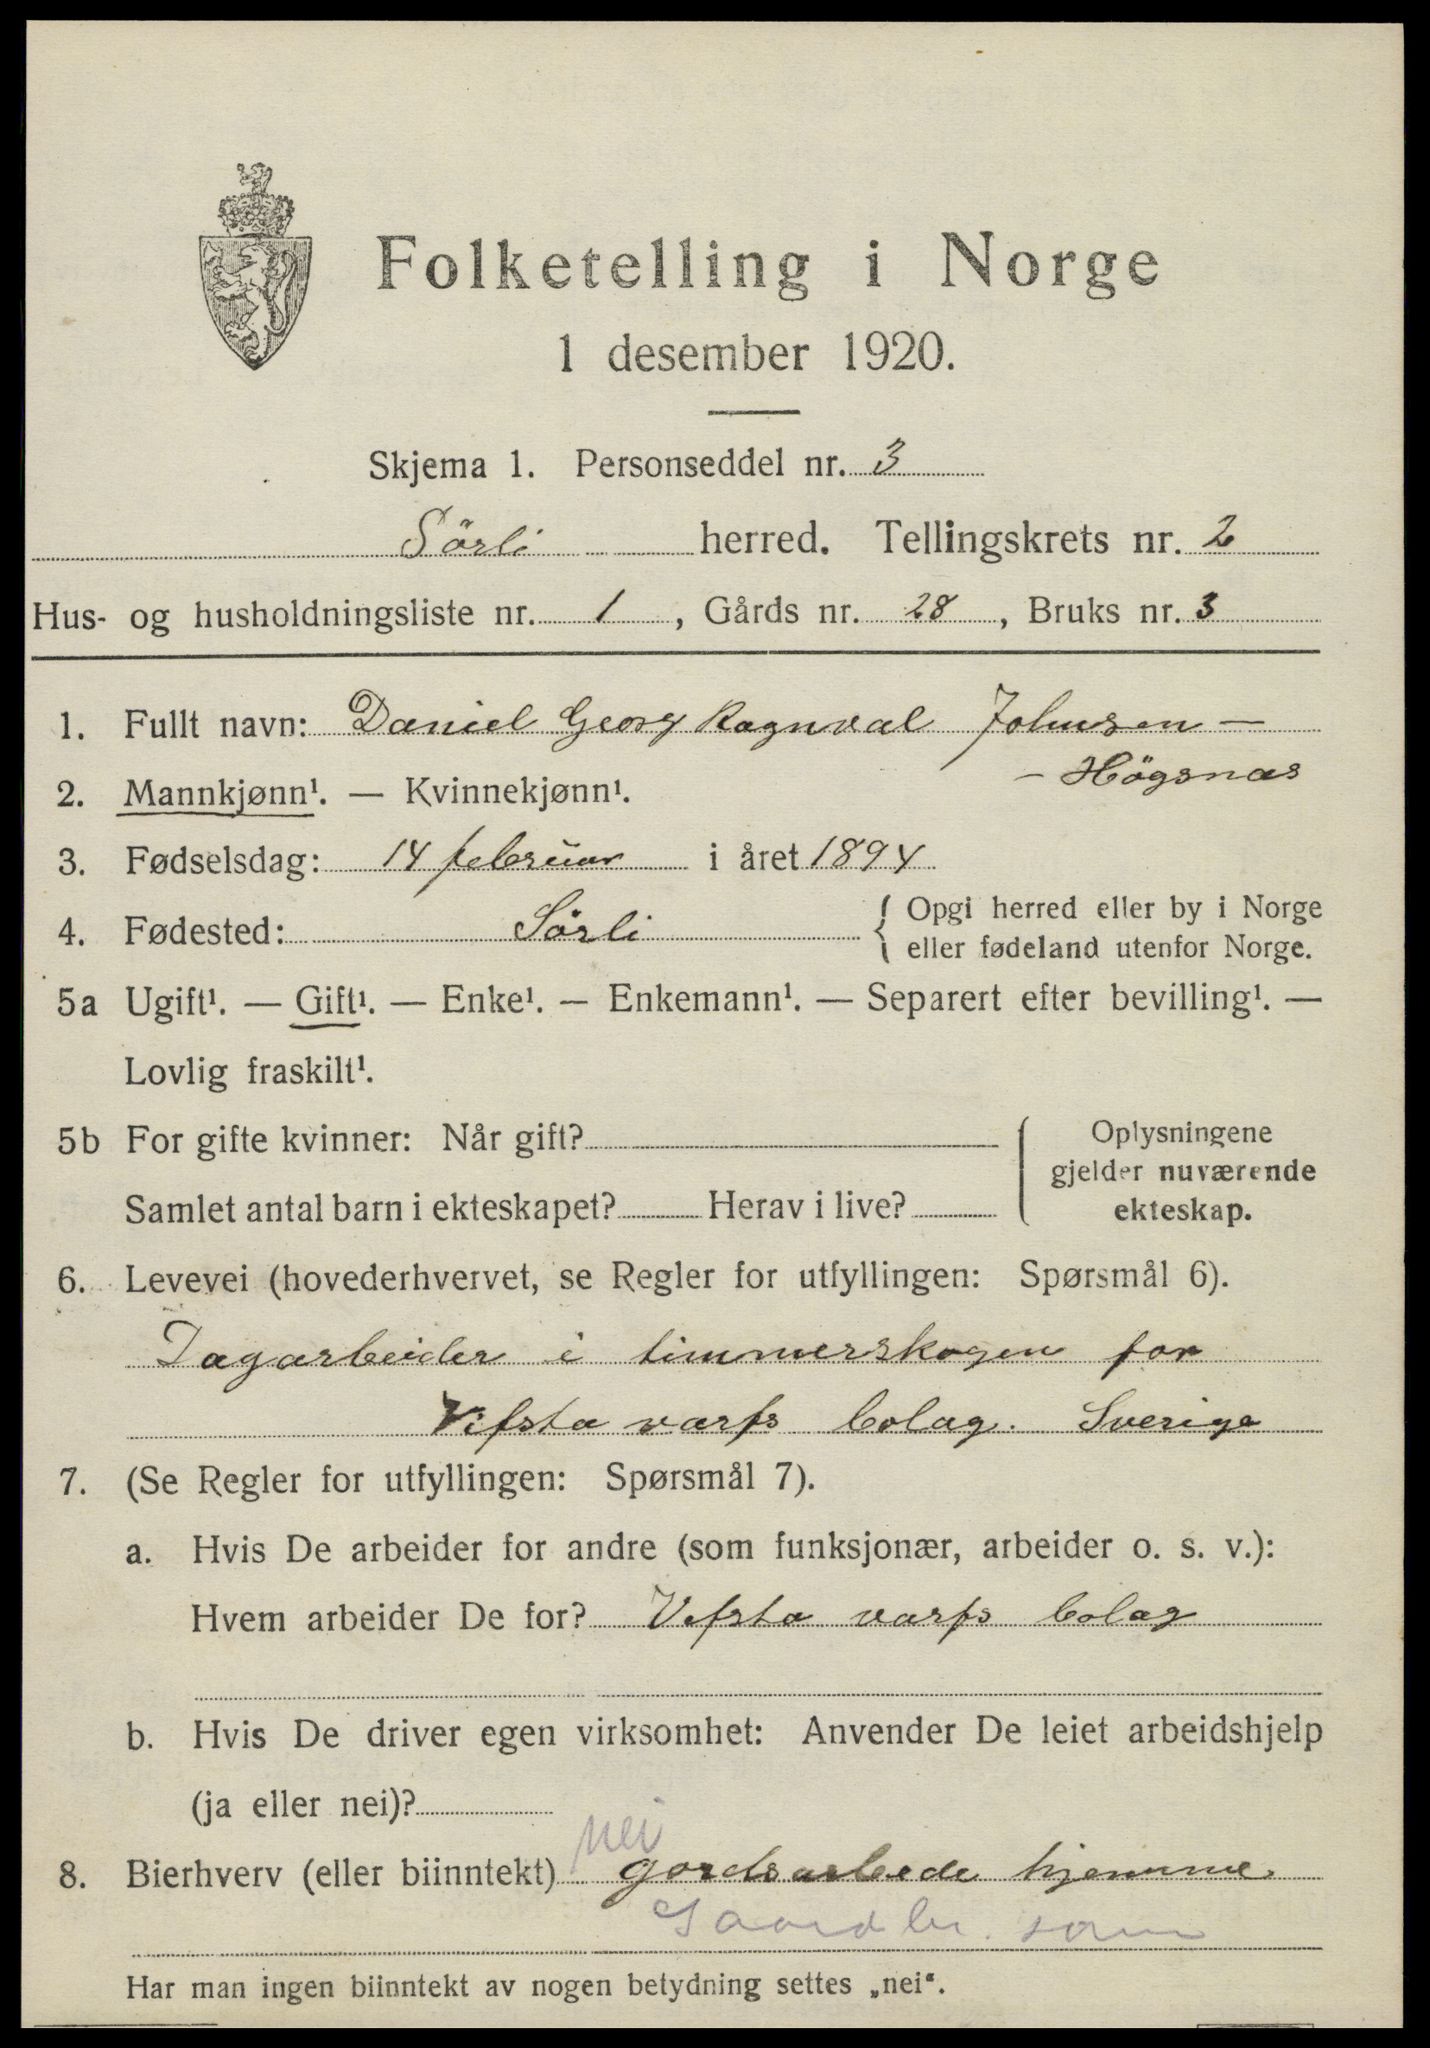 Folketelling i Norge
1 desember 1920.
Skjema 1. Personseddel nr. 3
Sörli herred. Tellingskrets nr. 2
Hus- og husholdningsliste nr. 1, Gårds nr. 28, Bruks nr. 3
1. Fullt navn: Daniel Georg Ragnval Johnsen —
— Högsnas
2. Mannkjønn¹. — Kvinnekjønn¹.
3. Fødselsdag: 14 februar i året 1894
4. Fødested: Sörli { Opgi herred eller by i Norge
eller fødeland utenfor Norge.
5a Ugift¹. — Gift¹. — Enke¹. — Enkemann¹. — Separert efter bevilling¹. —
Lovlig fraskilt¹.
5b For gifte kvinner: Når gift?
Samlet antal barn i ekteskapet? Herav i live?
Oplysningene
gjelder nuværende
ekteskap.
6. Levevei (hovederhvervet, se Regler for utfyllingen: Spørsmål 6).
Dagarbeider i timmerskogen for
Vifsta varfs bolag. Sverige
7. (Se Regler for utfyllingen: Spørsmål 7).
a. Hvis De arbeider for andre (som funksjonær, arbeider o. s. v.):
Hvem arbeider De for? Vifsta varfs bolag
b. Hvis De driver egen virksomhet: Anvender De leiet arbeidshjelp
(ja eller nei)?
nei
8. Bierhverv (eller biinntekt) gordsarbeide hjemme
Har man ingen biinntekt av nogen betydning settes „nei“.